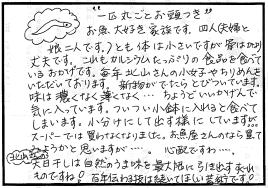 "一匹丸ごとお頭つき"
お魚大好き家族です。四人(夫婦と
娘二人です)とも体は小さいですが骨は
丈夫です。これもカルシウムたっぷりの食品を食べて
いるおかげです。毎年北山さんの小女子やちりめんを
いただいております。新物がでたらとびついています。
味は濃くなく薄くなく…ちょうどいいかげんで
気に入っています。ついつい小鉢に入れると食べて
しまいます。小分けにして出す様にしていますが…。
スーパーでは買わなくなりました。お魚屋さんのなら買て
みようかと思いますが…。心配ですね…。
北山さんの
天日干しは自然のうま味を最大限に引き出す
ものですね!百年伝わる技は続いてほしい芸術です!